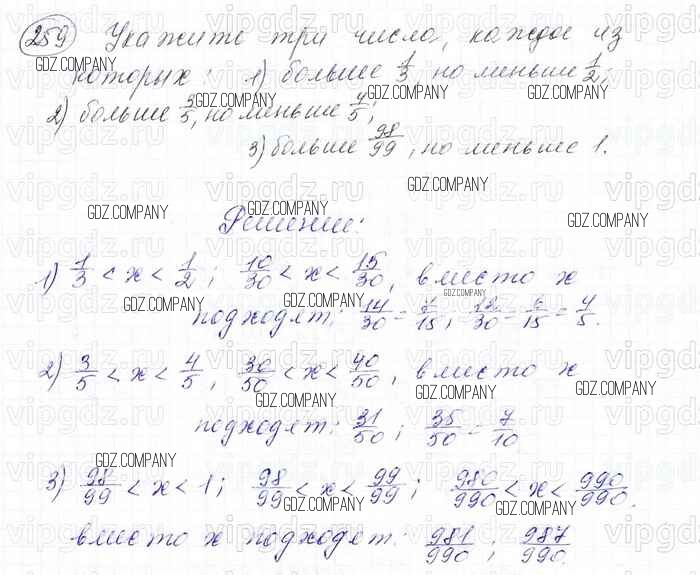 259 Укажите три числа, каждое из
которых: 1) больше 1/3, но меньше 1/2;
2) больше 3/5, но меньше 4/5;
3) больше 98/99, но меньше 1.
Решение:
1) 1/3 < x < 1/2; 10/30 < x < 15/30, вместо x
подходят: 14/30 = 7/15; 12/30 = 6/15 = 4/5.
2) 3/5 < x < 4/5, 30/50 < x < 40/50, вместо x
подходят: 31/50; 35/50 = 7/10
3) 98/99 < x < 1; 98/99 < x < 99/99; 980/990 < x < 990/990.
вместо x подходят: 981/990; 987/990.
GDZ.COMPANY
vipgdz.ru